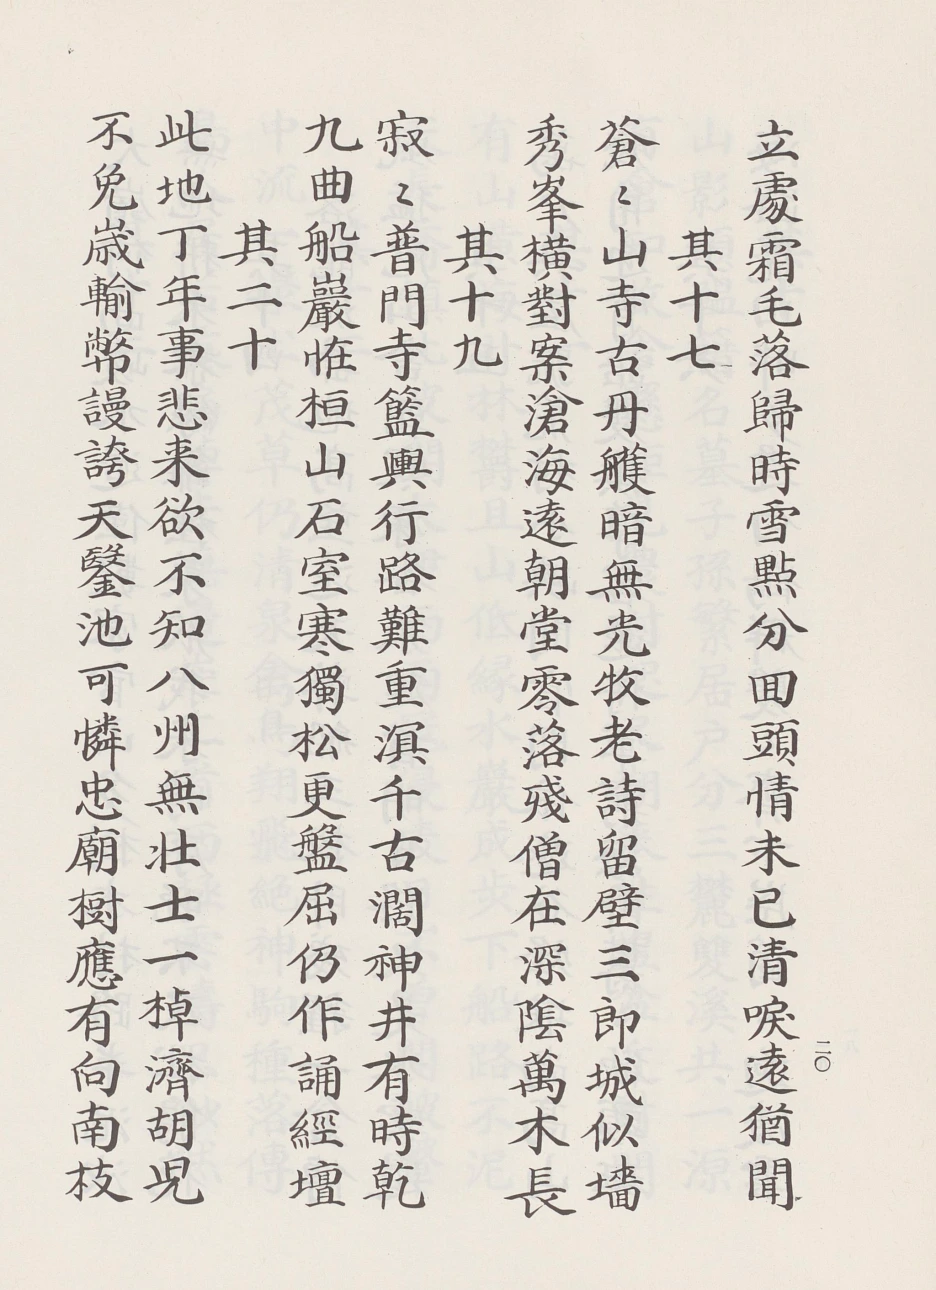 立處霜毛落歸時雪點分回頭情未已清唳遠猶聞
其十七
蒼〻山寺古丹雘暗無光牧老詩留壁三郎城似墻
秀峯橫對案滄海遠朝堂零落殘僧在深陰萬木長
其十九
寂〻普門寺籃輿行路難重溟千古濶神井有時乾
九曲船巖恠桓山石室寒獨松更盤屈仍作誦經壇
其二十
此地丁年事悲来欲不知八州無壮士一棹濟胡児
不免歲輸幣謾誇天鑿池可憐忠廟樹應有向南枝
二〇